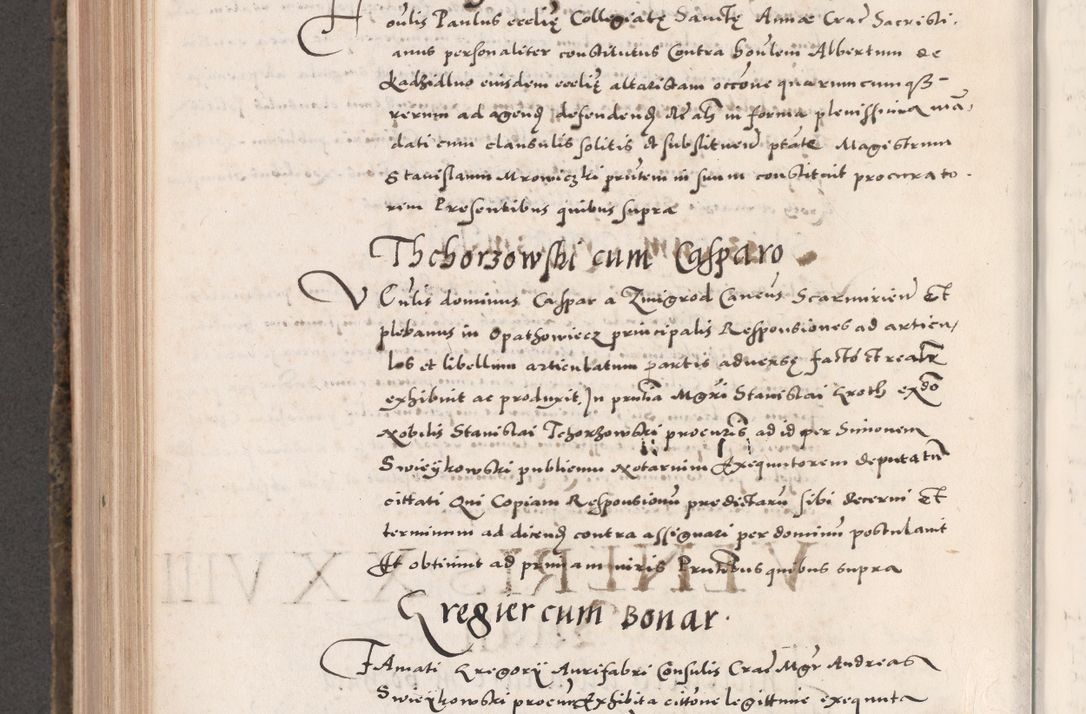 Honlis Paulus ecclię Collegiatę Sanctę Annæ Crac Sacristi-
anus personaliter constitutus Contra honlem Albertum de
Radzidlno eiusdem ecclię altaristam occōne quarumcumqз
rerum ad agend defendend &c ac in forma plenissima man-
dati cum clausulis solitis et substituen ptāte Magistrum
Stanislaum Mrowiczki pntem in suum constituit procurato-
rem Presentibus quibus supra
Thchorzowski cum Casparo
Venlis dominus Caspar a Zmigrod Cancus Scarmirien Et
plebanus in Opathowiecz principalis Responsiones ad articu-
los et libellum articulatum partis adversę facto et realr
exhibuit ac produxit, In pntia Mgri Stanislai Groth ex do
Nobilis Stanislai Tchorzowski procuris ad id per Simonem
Swieykowski publicum Notarium Exequutorem deputatū
cittati Qui Copiam Responsionū predictarū sibi decerni Et
terminum ad dicend contra assignari per dominū postulavit
Et obtinuit ad primam iuris Pntibus quibus supra
Gregier cum Bonar.
Famati Gregorij Aurifabri Consulis Crac Mgr Andreas
Swieykowski procur Exhibita cittōne legittime exequuta